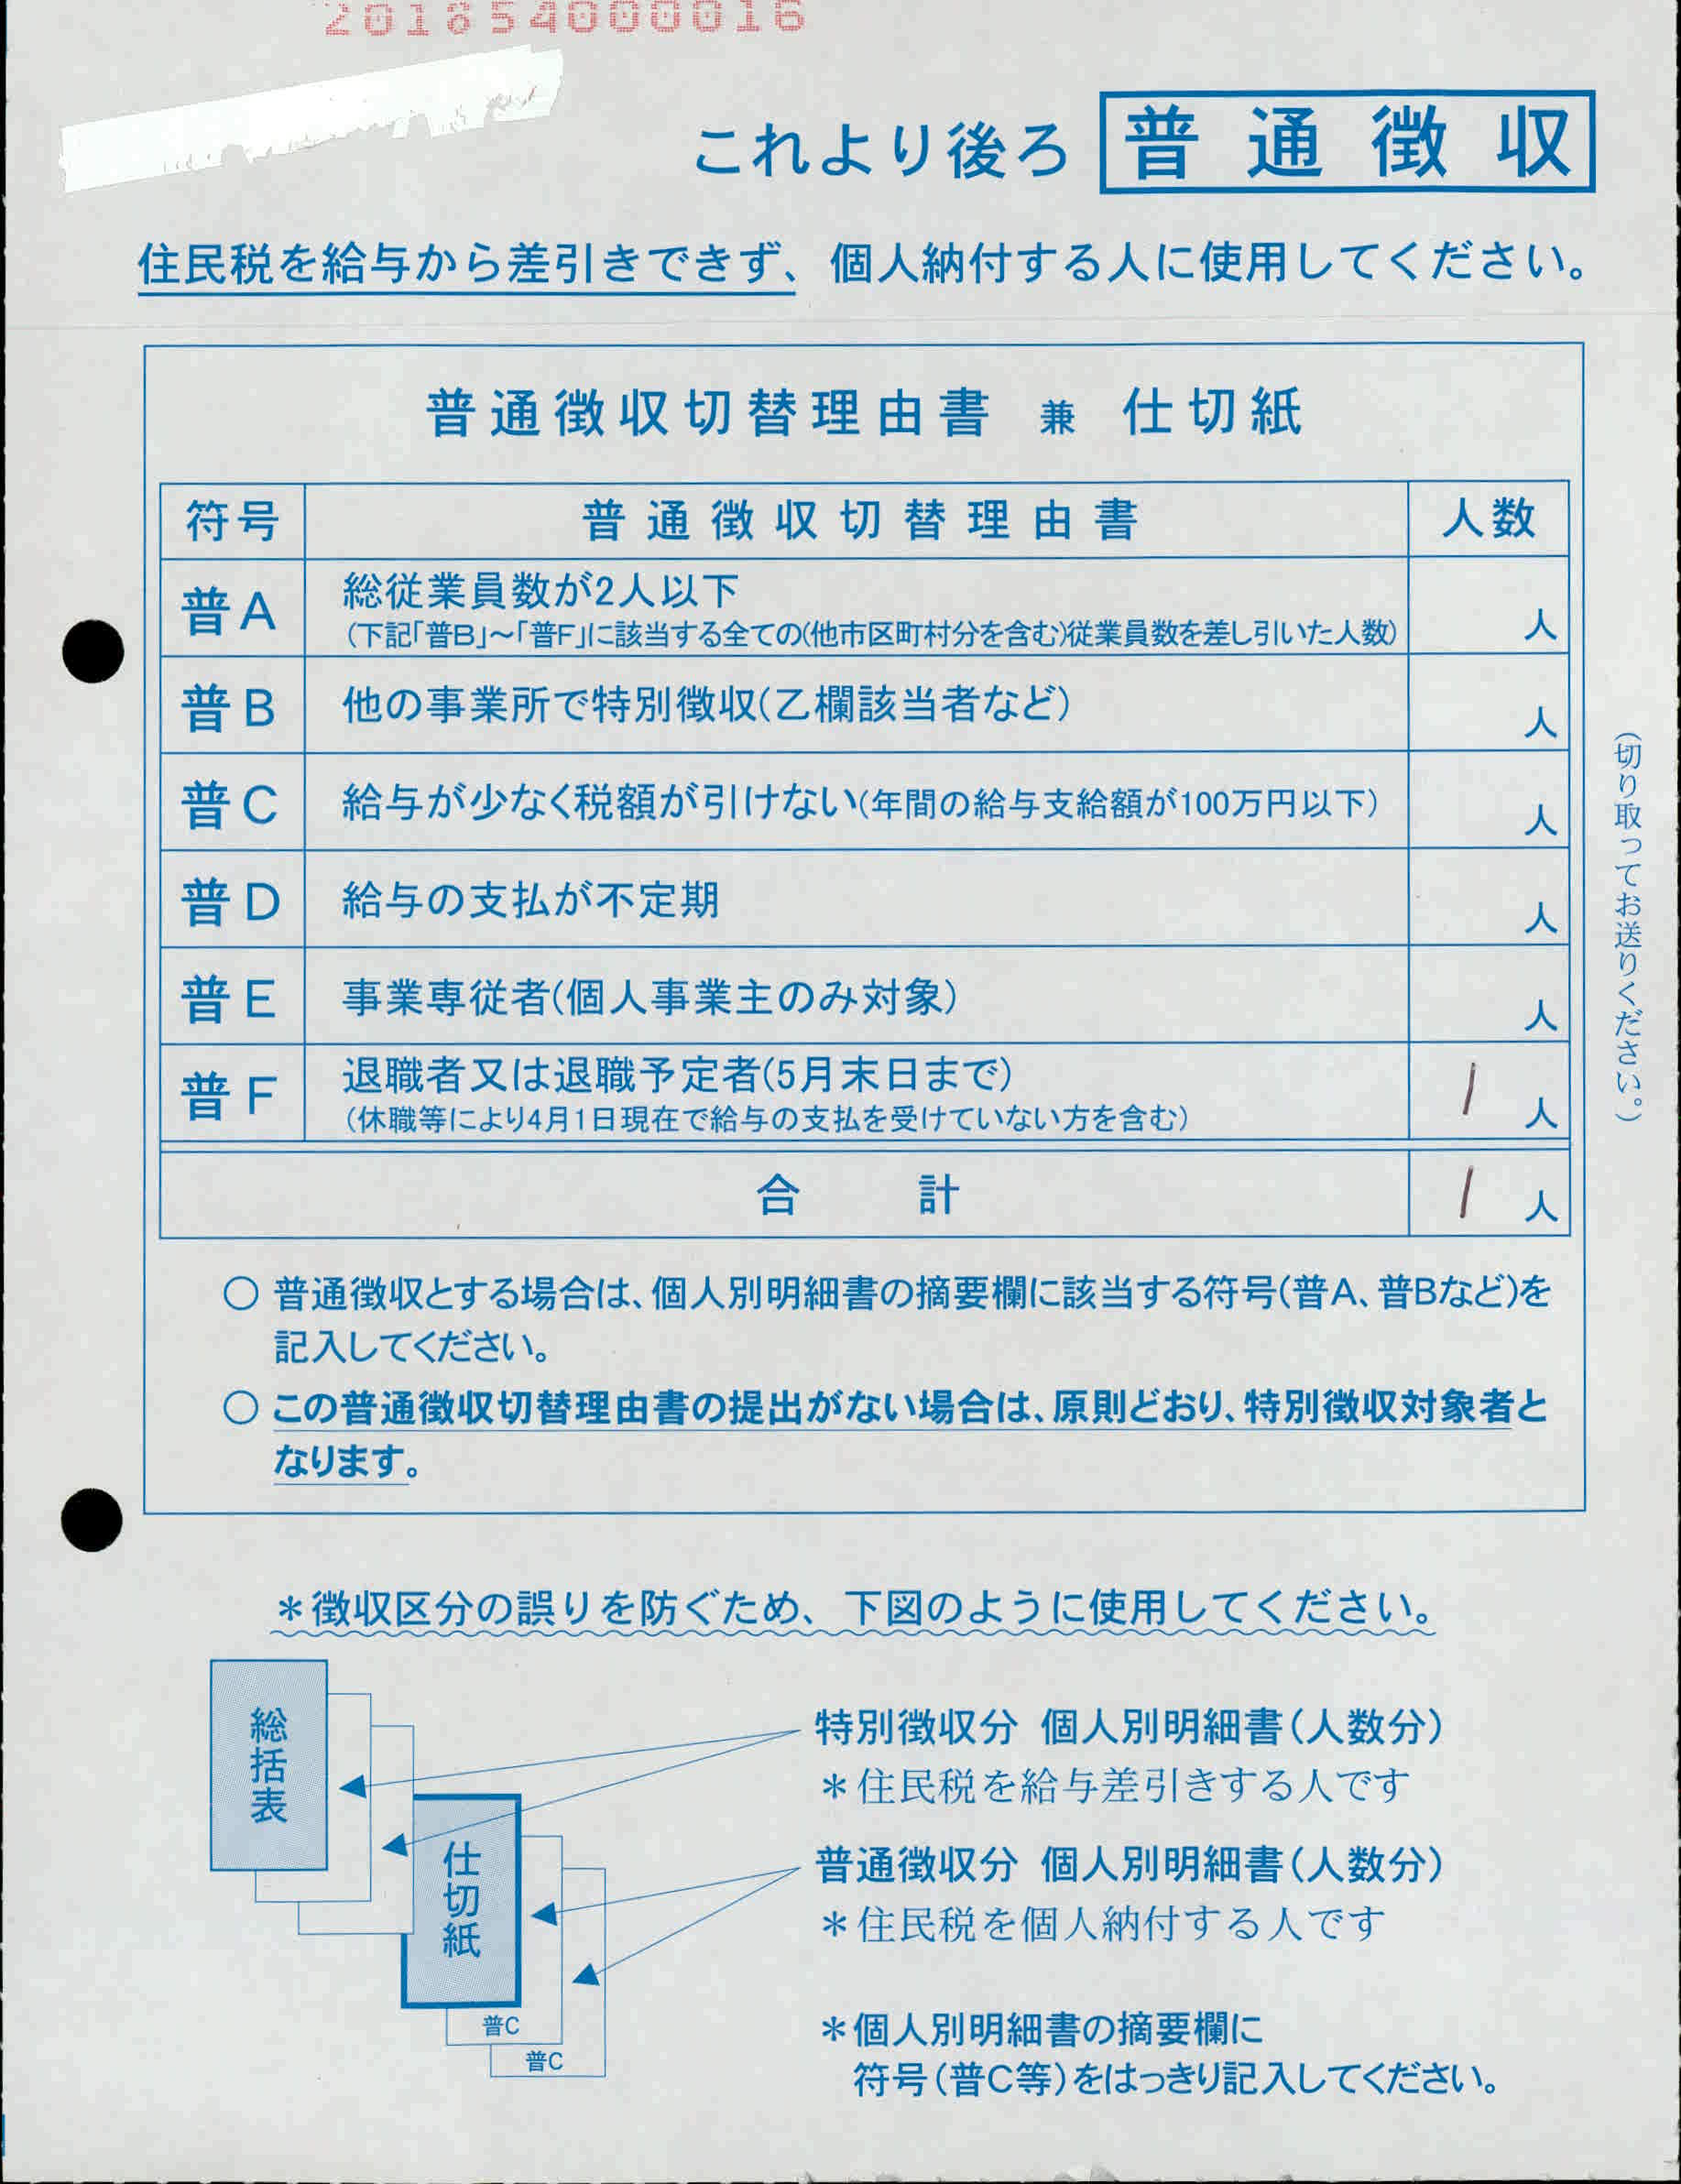 201654000016
これより後ろ 普通徴収
住民税を給与から差引きできず、個人納付する人に使用してください。
普通徴収切替理由書 兼 仕切紙
符号 普通徴収切替理由書 人数
普A 総従業員数が2人以下
(下記「普B」～「普F」に該当する全ての(他市区町村分を含む)従業員数を差し引いた人数) 人
普B 他の事業所で特別徴収(乙欄該当者など) 人
普C 給与が少なく税額が引けない(年間の給与支給額が100万円以下) 人
普D 給与の支払が不定期 人
普E 事業専従者(個人事業主のみ対象) 人
普F 退職者又は退職予定者(5月末日まで) 1 人
(休職等により4月1日現在で給与の支払を受けていない方を含む)
合計 1 人
(切り取ってお送りください。)
○ 普通徴収とする場合は、個人別明細書の摘要欄に該当する符号(普A、普Bなど)を
記入してください。
○ この普通徴収切替理由書の提出がない場合は、原則どおり、特別徴収対象者と
なります。
＊徴収区分の誤りを防ぐため、下図のように使用してください。
総括表
仕切紙
普C
普C
特別徴収分 個人別明細書(人数分)
＊住民税を給与差引きする人です
普通徴収分 個人別明細書(人数分)
＊住民税を個人納付する人です
＊個人別明細書の摘要欄に
符号(普C等)をはっきり記入してください。